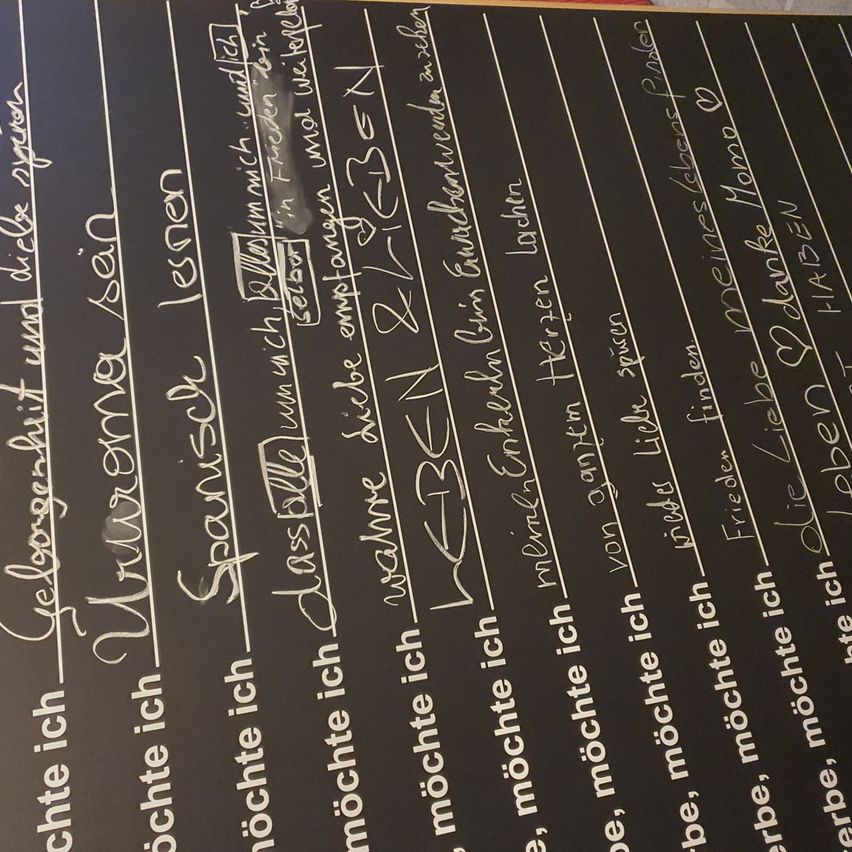 chte ich Gelegenheit und diebe spüren
öchte ich Ururoma sein
möchte ich Spanisch lernen
möchte ich dass alle um mich, alles um mich und ich
selbst in Frieden sein
möchte ich wahre Liebe empfangen und weitergeben
, möchte ich LEBEN & LIEBEN
e, möchte ich meinen Enkerln beim Erwachsenwerden zusehen
be, möchte ich von ganzem Herzen lachen
be, möchte ich wieder Liebe spüren
erbe, möchte ich Frieden finden
erbe, möchte ich die Liebe meines Lebens finden
hte ich Leben ♡ danke Momo ♡
HABEN